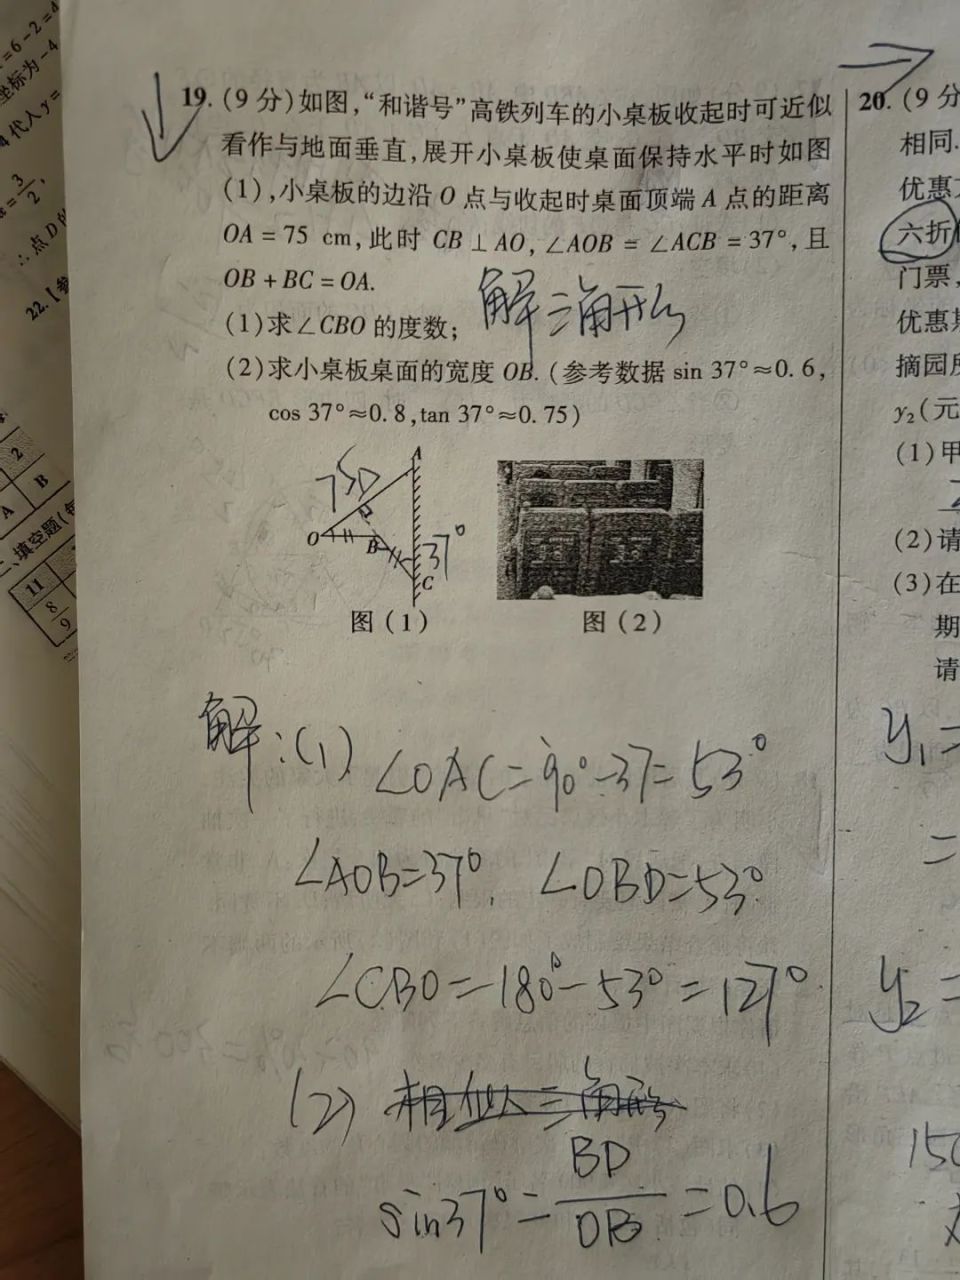 =6-2=4
坐标为-4
代入y=
=3/2,
∴点D的
22.【参
2
A B
二、填空题(每
11
8/9
19.(9分)如图,“和谐号”高铁列车的小桌板收起时可近似
看作与地面垂直,展开小桌板使桌面保持水平时如图
(1),小桌板的边沿O点与收起时桌面顶端A点的距离
OA=75 cm,此时CB⊥AO,∠AOB=∠ACB=37°,且
OB+BC=OA.
解三角形
(1)求∠CBO的度数;
(2)求小桌板桌面的宽度OB.(参考数据sin 37°≈0.6,
cos 37°≈0.8,tan 37°≈0.75)
A
75D
O
B
37°
C
图(1)
图(2)
解:(1) ∠OAC=90°-37=53°
∠AOB=37°, ∠OBD=53°
∠CBO=180°-53°=127°
(2) 相似三角形
sin37°=BD/OB=0.6
20.(9分
相同.
优惠
六折
门票,
优惠期
摘园所
y₂(元
(1)甲
(2)请
(3)在
期
请
y₁=
=
y₂=
150